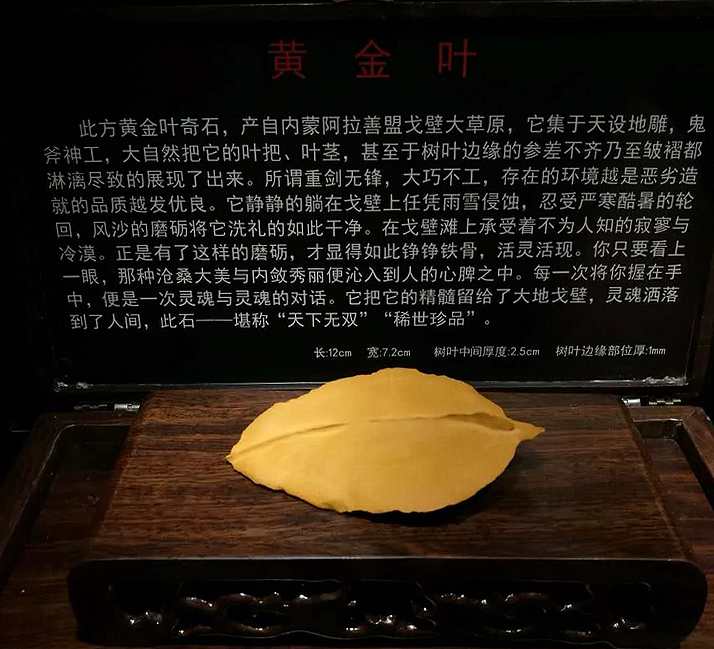 黄金叶
此方黄金叶奇石，产自内蒙阿拉善盟戈壁大草原，它集于天设地雕，鬼
斧神工，大自然把它的叶把、叶茎，甚至于树叶边缘的参差不齐乃至皱褶都
淋漓尽致的展现了出来。所谓重剑无锋，大巧不工，存在的环境越是恶劣造
就的品质越发优良。它静静的躺在戈壁上任凭雨雪侵蚀，忍受严寒酷暑的轮
回，风沙的磨砺将它洗礼的如此干净。在戈壁滩上承受着不为人知的寂寥与
冷漠。正是有了这样的磨砺，才显得如此铮铮铁骨，活灵活现。你只要看上
一眼，那种沧桑大美与内敛秀丽便沁入到人的心脾之中。每一次将你握在手
中，便是一次灵魂与灵魂的对话。它把它的精髓留给了大地戈壁，灵魂洒落
到了人间，此石——堪称“天下无双”“稀世珍品”。
长:12cm 宽:7.2cm 树叶中间厚度:2.5cm 树叶边缘部位厚:1mm